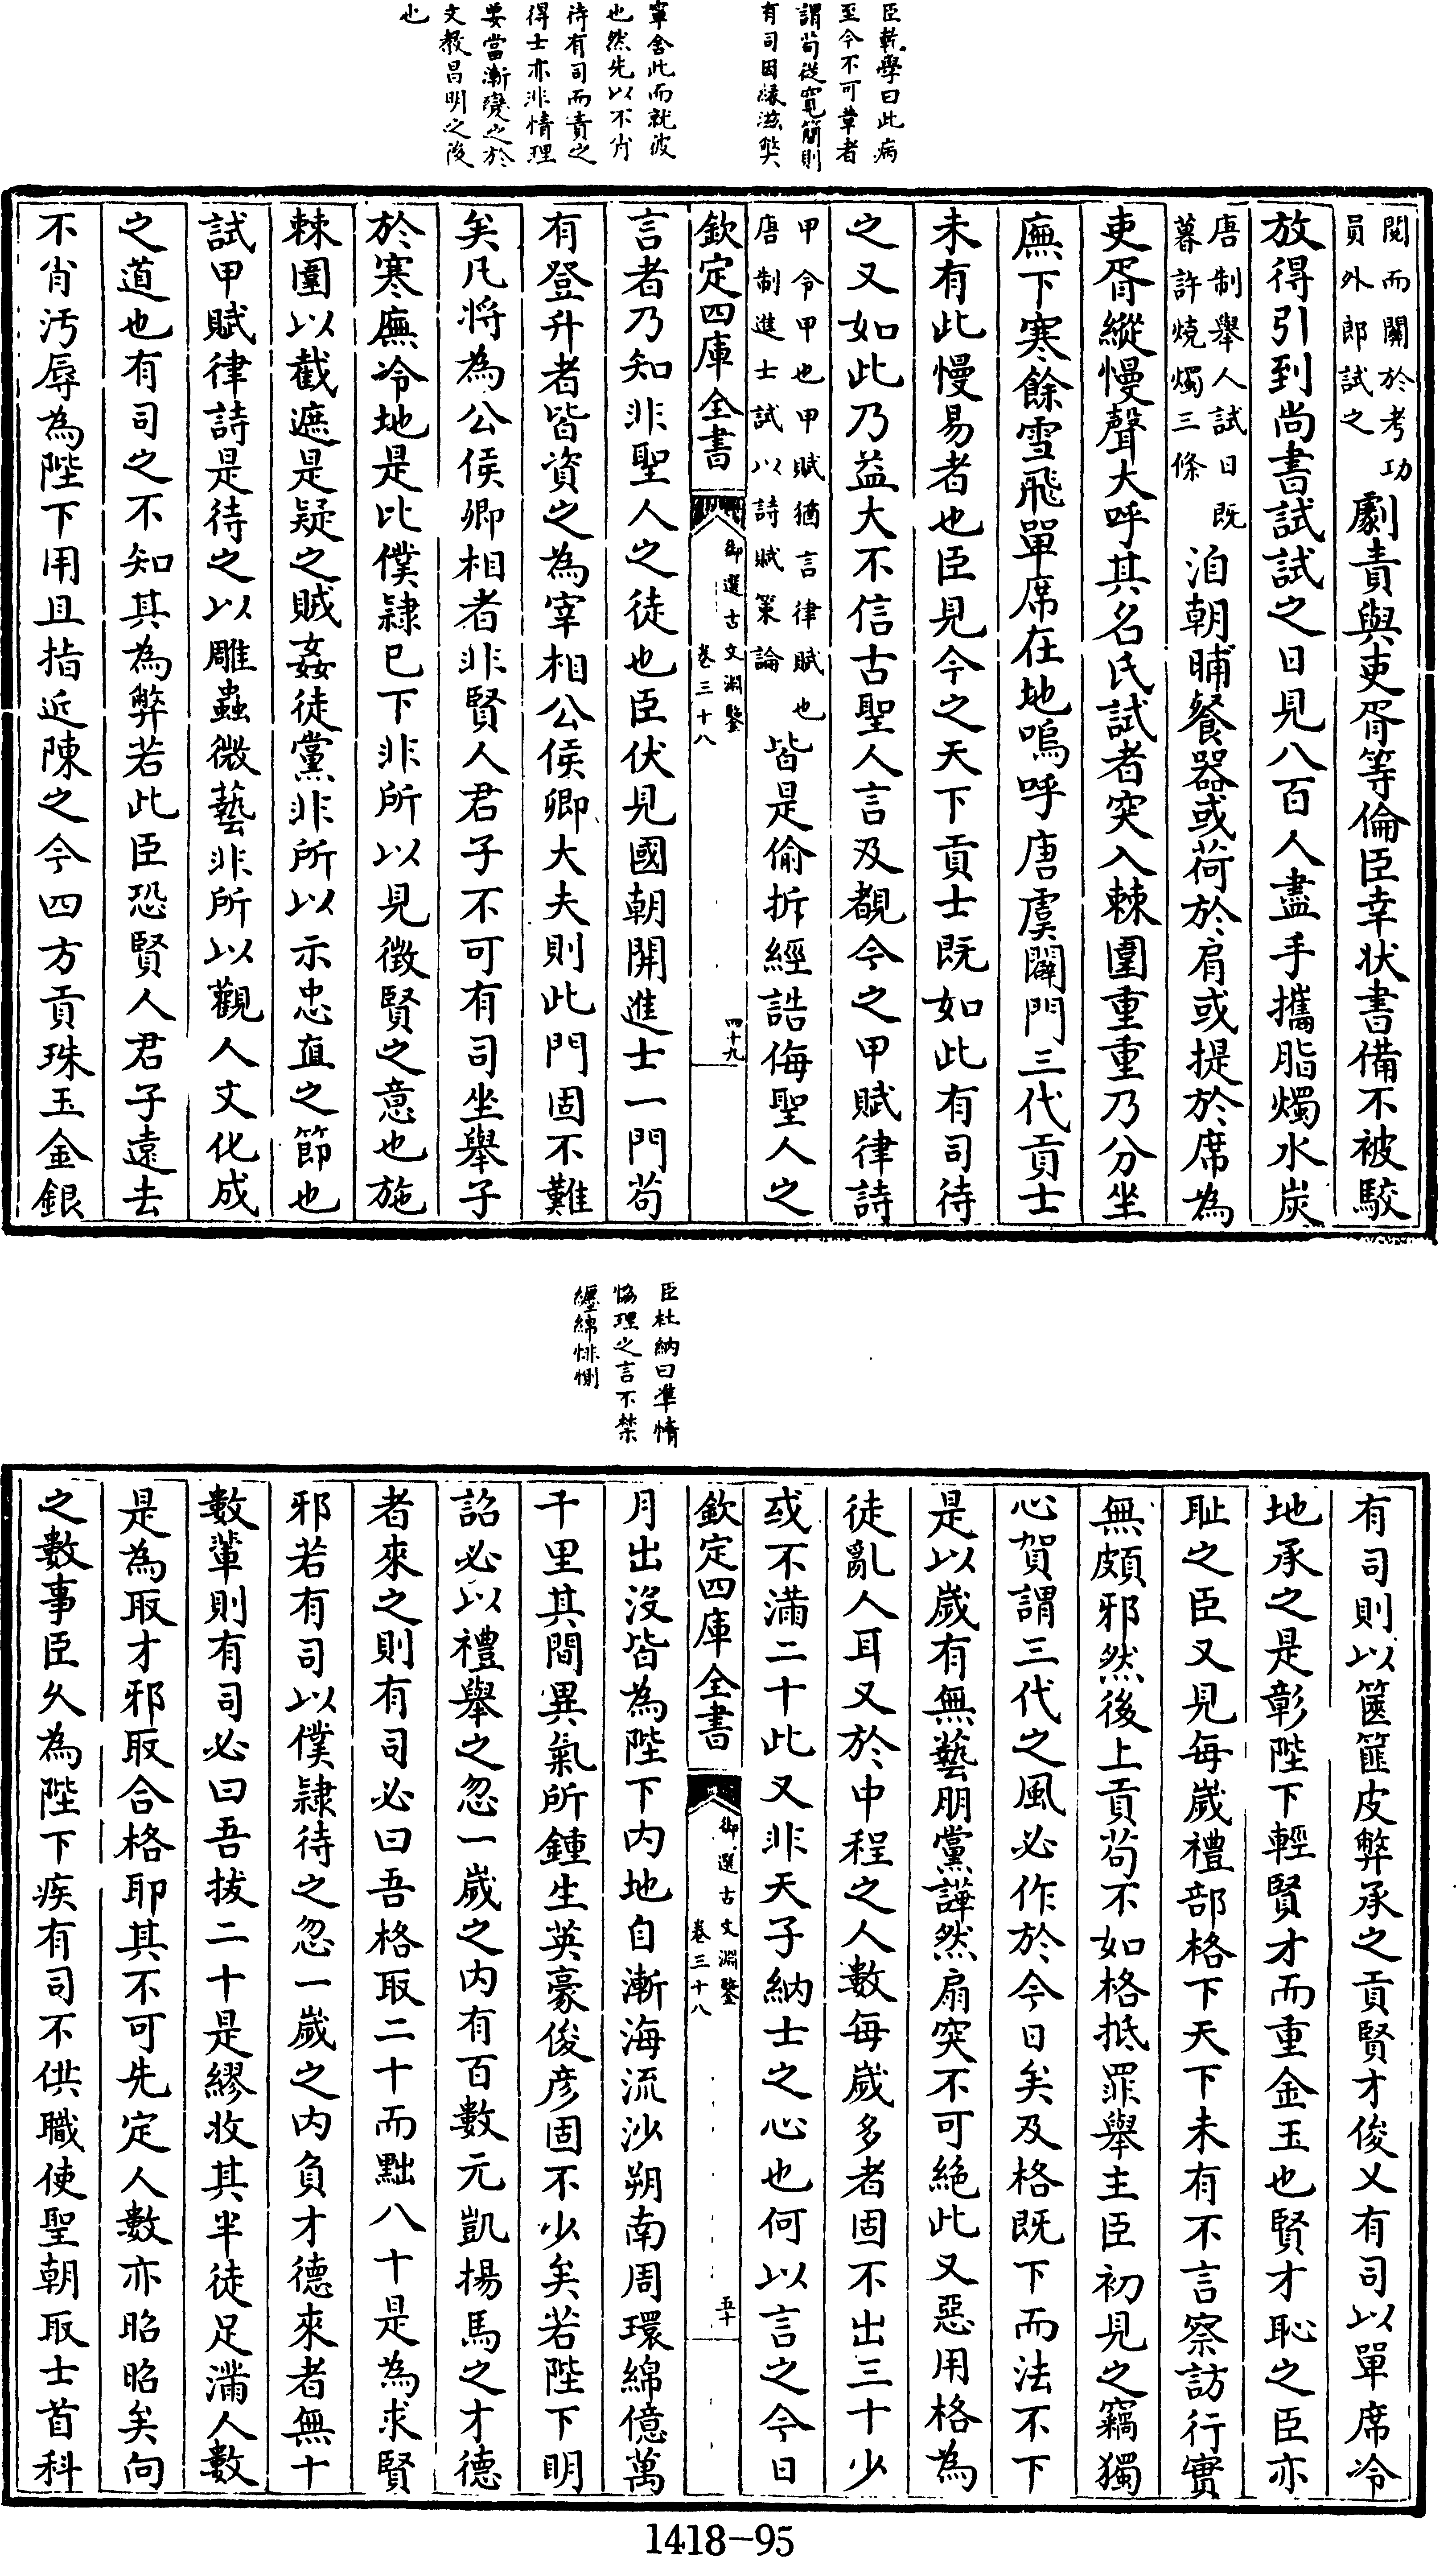 臣乾學曰此病
至今不可革者
謂苟從寬簡則
有司因緣滋弊
寧舍此而就彼
也然先以不肖
待有司而責之
得士亦非情理
要當漸變之於
文教昌明之後
也
閱而關於考功
員外郎試之
劇責與吏胥等倫臣幸狀書備不被駮
放得引到尚書試試之日見八百人盡手攜脂燭水炭
唐制舉人試日既
暮許燒燭三條
洎朝晡餐器或荷於肩或提於席為
吏胥縱慢聲大呼其名氏試者突入棘圍重重乃分坐
廡下寒餘雪飛單席在地嗚呼唐虞闢門三代貢士
未有此慢易者也臣見今之天下貢士既如此有司待
之又如此乃益大不信古聖人言及覩今之甲賦律詩
甲令甲也甲賦猶言律賦也
唐制進士試以詩賦策論
皆是偷折經誥侮聖人之
欽定四庫全書
御選古文淵鑒
卷三十八
四十九
言者乃知非聖人之徒也臣伏見國朝開進士一門苟
有登升者皆資之為宰相公侯卿大夫則此門固不難
矣凡將為公侯卿相者非賢人君子不可有司坐舉子
於寒廡冷地是比僕隷已下非所以見徵賢之意也施
棘圍以截遮是疑之賊姦徒黨非所以示忠直之節也
試甲賦律詩是待之以雕蟲微藝非所以觀人文化成
之道也有司之不知其為弊若此臣恐賢人君子遠去
不肖汚辱為陛下用且指近陳之今四方貢珠玉金銀
臣杜納曰準情
恊理之言不禁
纒綿悱惻
有司則以篋篚皮幣承之貢賢才俊乂有司以單席冷
地承之是彰陛下輕賢才而重金玉也賢才恥之臣亦
耻之臣又見每歲禮部格下天下未有不言察訪行實
無頗邪然後上貢苟不如格抵罪舉主臣初見之竊獨
心賀謂三代之風必作於今日矣及格既下而法不下
是以歲有無藝朋黨譁然扇突不可絶此又惡用格為
徒亂人耳又於中程之人數每歲多者固不出三十少
或不滿二十此又非天子納士之心也何以言之今日
欽定四庫全書
御選古文淵鑒
卷三十八
五十
月出沒皆為陛下内地自漸海流沙朔南周環綿億萬
千里其間異氣所鍾生英豪俊彦固不少矣若陛下明
詔必以禮舉之忽一歲之内有百數元凱揚馬之才德
者來之則有司必曰吾格取二十而黜八十是為求賢
邪若有司以僕隷待之忽一歲之内負才德來者無十
數輩則有司必曰吾拔二十是繆收其半徒足滿人數
是為取才邪取合格耶其不可先定人數亦昭昭矣向
之數事臣久為陛下疾有司不供職使聖朝取士首科
1418-95